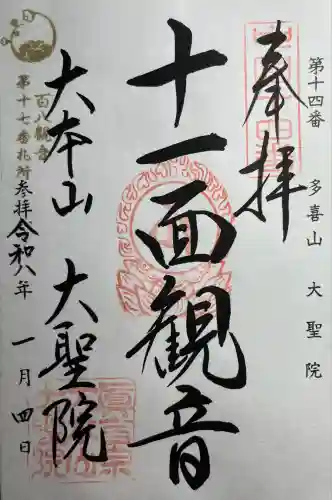 第十四番 多喜山 大聖院
奉拝
十一面観音
大本山 大聖院
百八観音
第十七番札所参拝
令和八年 一月四日